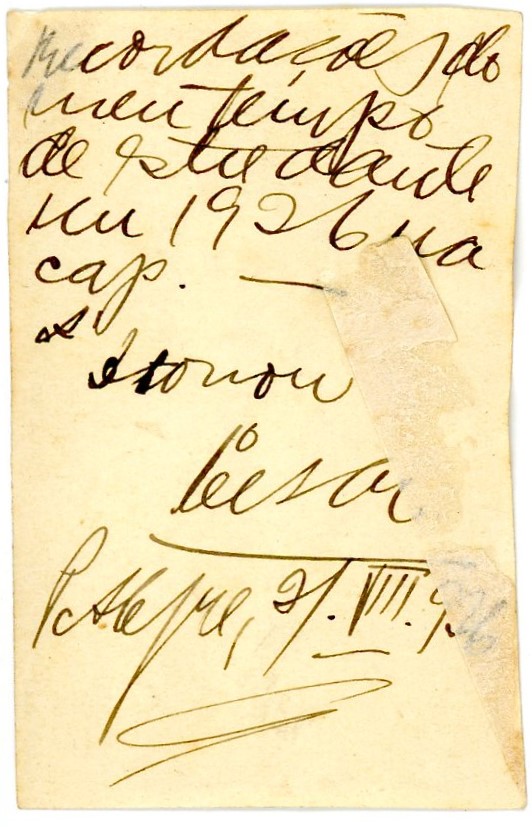 Recordações do
meu tempo
de estudante
em 1926 na
cap. —
César
P. Alegre, 21. VIII. 926